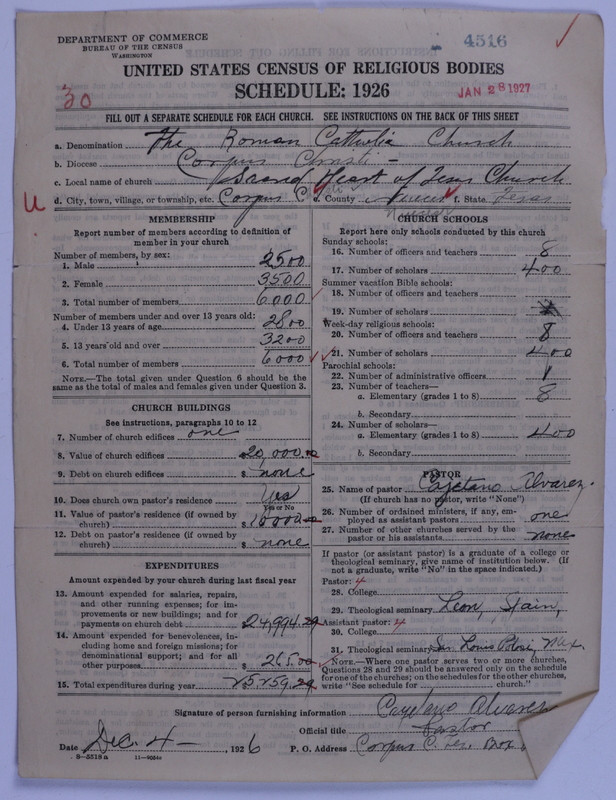 DEPARTMENT OF COMMERCE
BUREAU OF THE CENSUS
WASHINGTON
4516
UNITED STATES CENSUS OF RELIGIOUS BODIES
SCHEDULE: 1926
30
JAN 28 1927
FILL OUT A SEPARATE SCHEDULE FOR EACH CHURCH. SEE INSTRUCTIONS ON THE BACK OF THIS SHEET
a. Denomination The Roman Catholic Church
b. Diocese Corpus Christi
c. Local name of church Sacred Heart of Jesus Church
d. City, town, village, or township, etc. Corpus C. e. County Nueces f. State Texas
MEMBERSHIP
Report number of members according to definition of
member in your church
Number of members, by sex:
1. Male 2500
2. Female 3500
3. Total number of members 6000
Number of members under and over 13 years old:
4. Under 13 years of age 2800
5. 13 years old and over 3200
6. Total number of members 6000
NOTE.—The total given under Question 6 should be
same as the total of males and females given under Question 3.
CHURCH BUILDINGS
See instructions, paragraphs 10 to 12
7. Number of church edifices one
8. Value of church edifices $20,000.00
9. Debt on church edifices $ none
10. Does church own pastor's residence Yes
Yes or No
11. Value of pastor's residence (if owned by
church) $10000
12. Debt on pastor's residence (if owned by
church) $ none
EXPENDITURES
Amount expended by your church during last fiscal year
13. Amount expended for salaries, repairs,
and other running expense; for im-
provements or new buildings; and for
payments on church debt $24,994.29
14. Amount expended for benevolences, in-
cluding home and foreign missions; for
denominational support; and for all
other purposes $265.00
15. Total expenditures during year 25259.29
CHURCH SCHOOLS
Report here only schools conducted by this church
Sunday schools:
16. Number of officers and teachers 8
17. Number of scholars 400
Summer vacation Bible schools:
18. Number of officers and teachers
19. Number of scholars
Week-day religious schools:
20. Number of officers and teachers 8
21. Number of scholars 400
Parochial schools:
22. Number of administrative officers 1
23. Number of teachers—
a. Elementary (grades 1 to 8) 8
b. Secondary
24. Number of scholars—
a. Elementary (grades 1 to 8) 400
b. Secondary
PASTOR
25. Name of pastor Cayetano Alvarez
(If church has no pastor, write "None")
26. Number of ordained ministers, if any, em-
ployed as assistant pastors one
27. Number of other churches served by the
pastor or his assistants none
If pastor (or assistant pastor) is a graduate of a college or
theological seminary, give name of institution below. (If
not a graduate, write "No" in the space indicated.)
Pastor: 4
28. College
29. Theological seminary Leon, Spain,
Assistant pastor: 4
30. College
31. Theological seminary San Louis Potosi, Mex.
NOTE.—Where one pastor serves two or more churches,
Questions 28 and 29 should be answered only on the schedule
for one of the churches; on the schedules for the other churches,
write "See schedule for church."
Signature of person furnishing information Cayetano Alvarez
Official title Pastor
Date Dec. 4 — , 1926 P. O. Address Corpus C. Tex. Box
8—5518 a 11—9084